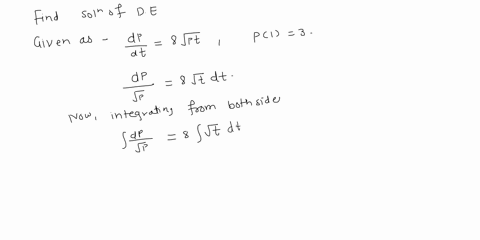 Find soln of DE
Given as - dP/dt = 8√Pt , P(1) = 3.
dP/√P = 8√t dt.
Now, integrating from both side
∫ dP/√P = 8 ∫ √t dt